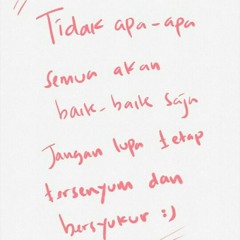 Tidak apa-apa
semua akan
baik-baik saja
Jangan lupa tetap
tersenyum dan
bersyukur :)